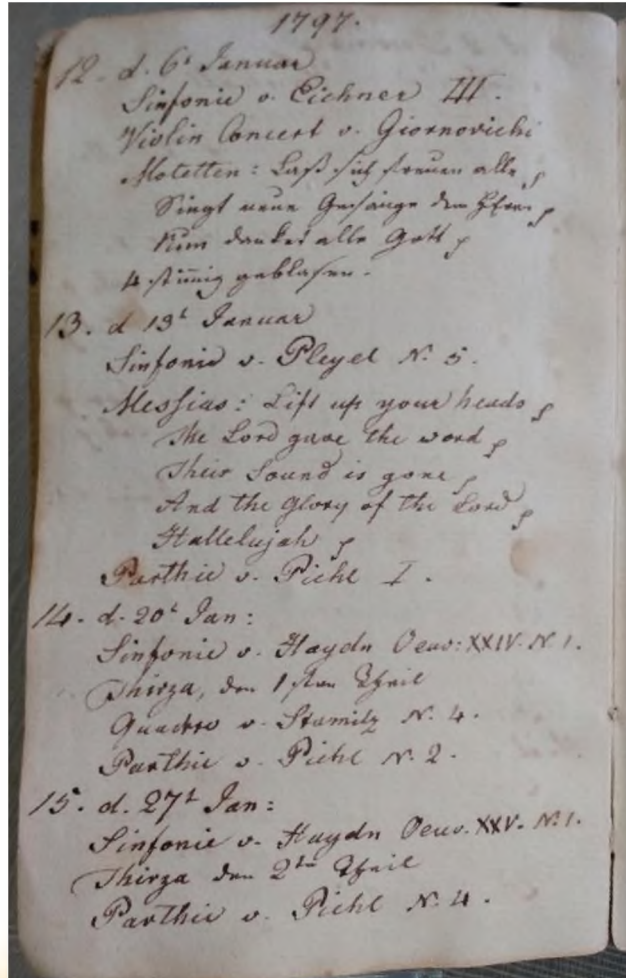 1797.
12. d. 6t Januar
Sinfonie v. Eichner III.
Violin Concert v. Giornovichi
Motetten: Laß sich freuen alle
Singt neue Gesänge dem Herrn
Nun danket alle Gott
4 stimig geblasen.
13. d 13t Januar
Sinfonie v. Pleyel N. 5.
Messias: Lift up your heads
The Lord gave the word
Their Sound is gone
And the Glory of the Lord
Hallelujah
Parthie v. Pichl I.
14. d. 20t Jan:
Sinfonie v. Haydn Oeuv: XXIV. N. 1.
Thirza, den 1sten Theil
Quadro v. Stamitz N. 4.
Parthie v. Pichl N. 2.
15. d. 27t Jan:
Sinfonie v. Haydn Oeuv. XXV. N. 1.
Thirza den 2ten Theil
Parthie v. Pichl N. 4.